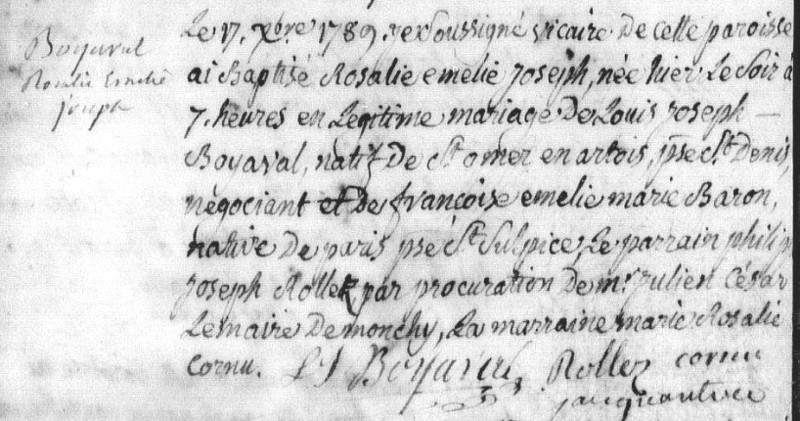 Boyaval
Rosalie Emelie
joseph
Le 17. xbre 1789. je soussigné vicaire de cette paroisse
ai Baptisé Rosalie emelie joseph, née hier Le soir à
7. heures en Legitime mariage De Louis joseph —
Boyaval, natif De St omer en artois, psse St Denis,
négociant et de françoise emelie marie Baron,
native De paris psse St Sulpice, Le parrain philip
joseph Rollez par procuration De mr julien César
Lemaire Demonchy, La marraine marie Rosalie
Cornu. LJ Boyaval Rollez cornu